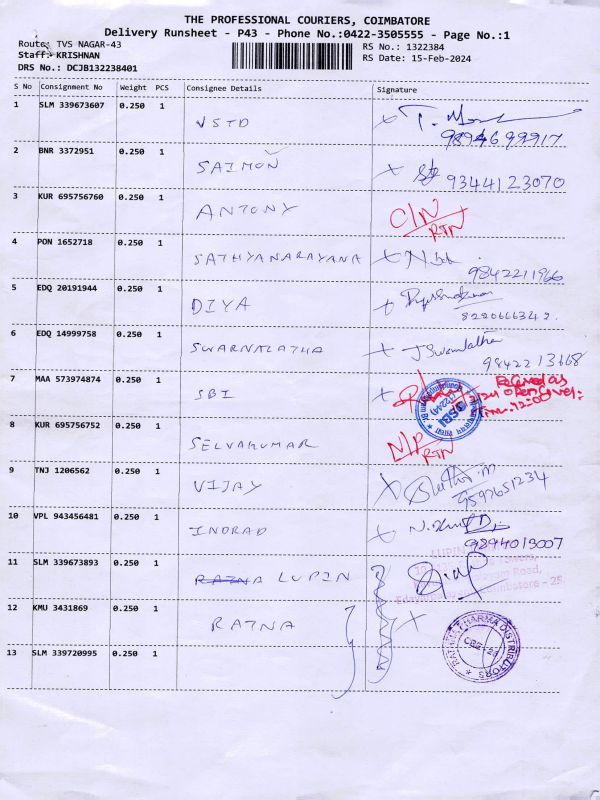 THE PROFESSIONAL COURIERS, COIMBATORE
Delivery Runsheet - P43 - Phone No.:0422-3505555 - Page No.:1
Route: TVS NAGAR-43
RS No.: 1322384
Staff: KRISHNAN
RS Date: 15-Feb-2024
DRS No.: DCJB132238401
S No Consignment No Weight PCS Consignee Details Signature
1 SLM 339673607 0.250 1 VSTD
9894699917
2 BNR 3372951 0.250 1 SAIMON
9344123070
3 KUR 695756760 0.250 1 ANTONY C/N
RTN
4 PON 1652718 0.250 1 SATHYANARAYANA
9842211966
5 EDQ 20191944 0.250 1 DIYA
8220666342.
6 EDQ 14999758 0.250 1 SWARNALATHA J Swarnalatha
98422 13668
7 MAA 573974874 0.250 1 SBI Received as
open cover.
SBI
8 KUR 695756752 0.250 1 SELVAKUMAR N/P
RTN
9 TNJ 1206562 0.250 1 VIJAY
9597651234
10 VPL 943456481 0.250 1 INDRAD
9894013007
11 SLM 339673893 0.250 1 RATNA LUPIN
LUPIN
Road,
Coimbatore - 25.
12 KMU 3431869 0.250 1 RATNA
RATNA PHARMA DISTRIBUTORS
CBE-25
13 SLM 339720995 0.250 1